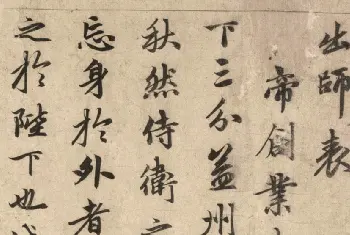 出師表
帝創業
下三分益州
秋然侍衛之
忘身於外者
之於陛下也